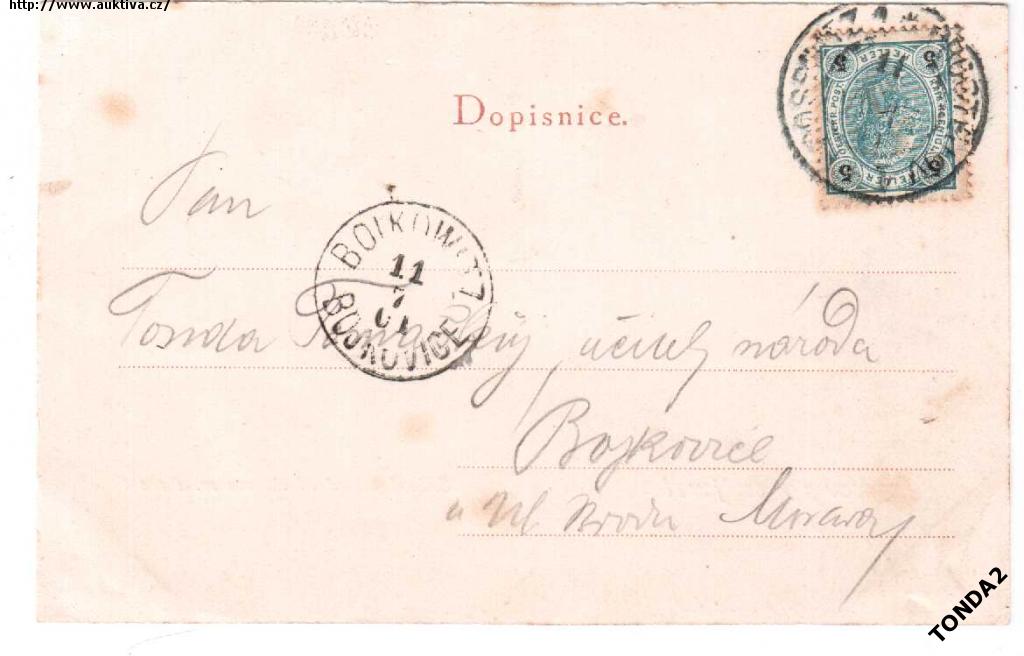 http://www.auktiva.cz/
Dopisnice.
5 5
5 5
Pan
BOIKOWITZ
11
7
01
BOJKOVICE
Tonda učitel národa
Bojkovice
u Uh. Brodu Morava
TONDA2